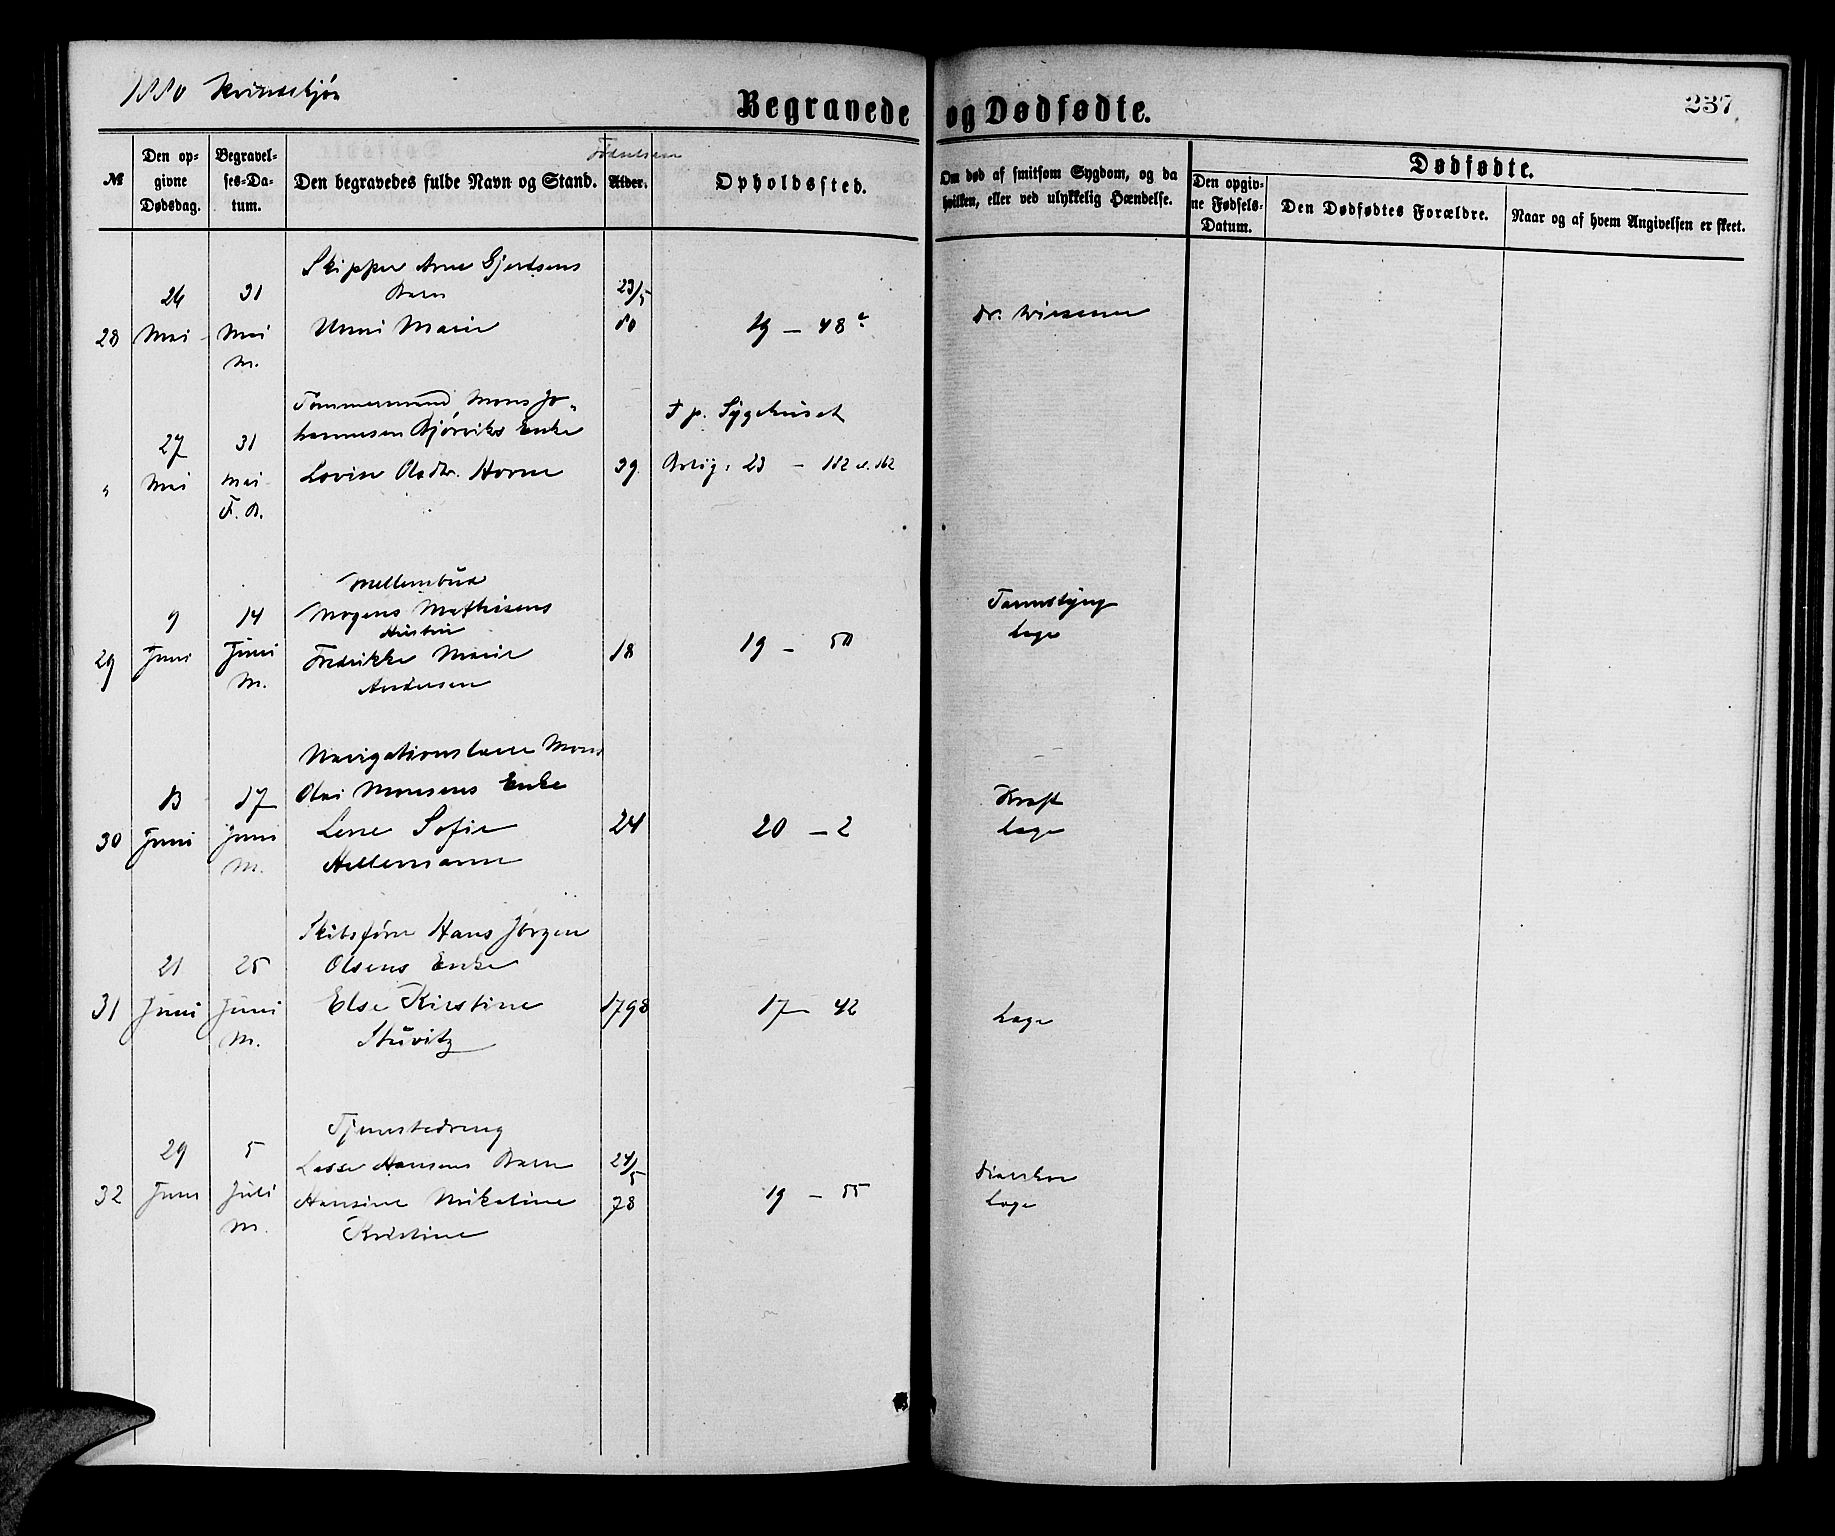 1880 Kvindekjøn
Begravede og Dødfødte.
237
№
Den op-
givne
Dødsdag.
Begravel-
ses-Da-
tum.
Den begravedes fulde Navn og Stand.
Fødselsaar
Alder.
Opholdssted.
Om død af smitsom Sygdom, og da
hvilken, eller ved ulykkelig Hændelse.
Dødfødte.
Den opgiv-
ne Fødsels-
Datum.
Den Dødfødtes Forældre.
Naar og af hvem Angivelsen er skeet.
Skipper Arne Gjertsens
Barn
28
26
Mai
31
Mai
M.
Unni Marie
23/5
80
19 - 48
Dr. Wiesener
Tømmermand Mons Jo-
hannesen Bjørviks Enke
"
27
Mai
31
Mai
F. B.
Lovise Olsdtr. Horne
39
F p. Sygehuset
Bolig: 23 - 182
Mellembud
Mogens Mathisens
Hustru
29
9
Juni
14
Juni
M.
Fredrikke Marie
Andersen
18
19 - 50
Læge
Navigationslærer Mons
Olai Monsens Enke
30
13
Juni
17
Juni
M.
Lene Sofie
Hellemann
24
20 - 2
Kraft
Læge
Skibsfører Hans Jørgen
Olsens Enke
31
21
Juni
25
Juni
M.
Else Kirstine
Stuvitz
1798
17 - 42
Læge
Tjenestedreng
Lasse Hansens Barn
32
29
Juni
5
Juli
M.
Hansine Nikoline
Kristine
24/5
78
19 - 55
Læge